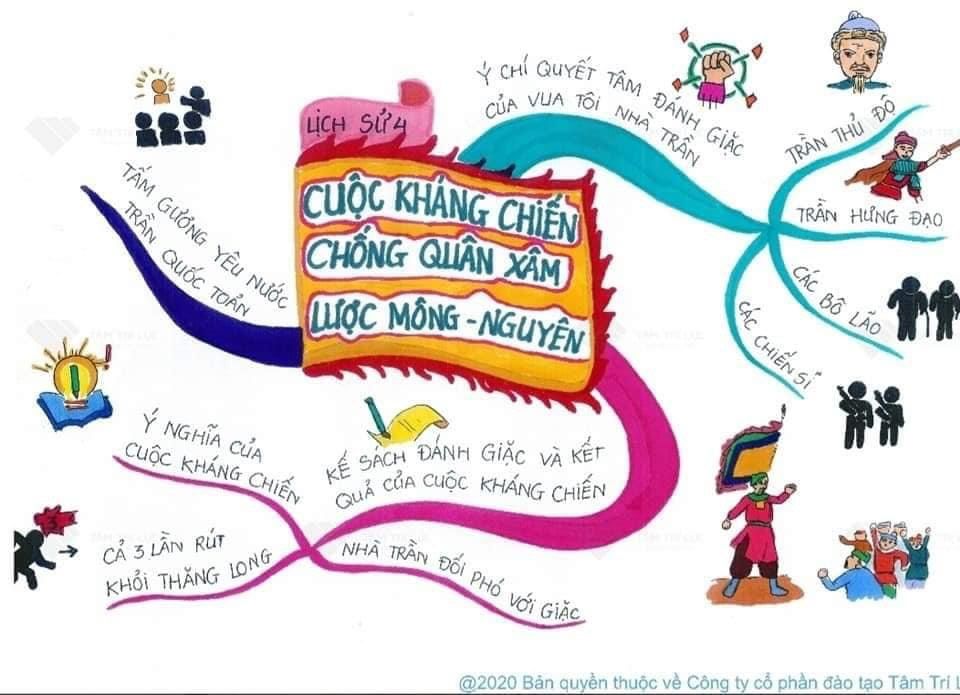 LỊCH SỬ 4
CUỘC KHÁNG CHIẾN
CHỐNG QUÂN XÂM
LƯỢC MÔNG - NGUYÊN
Ý CHÍ QUYẾT TÂM ĐÁNH GIẶC
CỦA VUA TÔI NHÀ TRẦN
TRẦN THỦ ĐỘ
TRẦN HƯNG ĐẠO
CÁC BÔ LÃO
CÁC CHIẾN SĨ
KẾ SÁCH ĐÁNH GIẶC VÀ KẾT
QUẢ CỦA CUỘC KHÁNG CHIẾN
NHÀ TRẦN ĐỐI PHÓ VỚI GIẶC
CẢ 3 LẦN RÚT
KHỎI THĂNG LONG
3
Ý NGHĨA CỦA
CUỘC KHÁNG CHIẾN
TẤM GƯƠNG YÊU NƯỚC
TRẦN QUỐC TOẢN
@2020 Bản quyền thuộc về Công ty cổ phần đào tạo Tâm Trí L